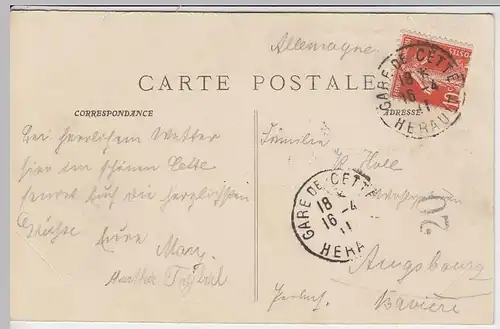 Allemagne
CARTE POSTALE
CORRESPONDANCE
ADRESSE
Bei herrlichem Wetter
hier im schönen Cette
sendet Euch die herzlichsten
Grüsse Eure Mary
Familie
Hall
Augsbourg
Bavière
GARE DE CETTE
18
16 -4
11
HERAU
GARE DE CETTE
18
16 -4
11
HERA
20